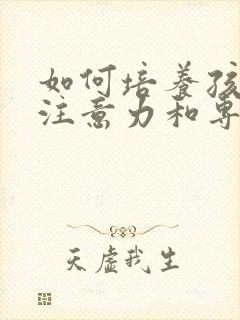 如何培养孩
注意力和专
天虚我生